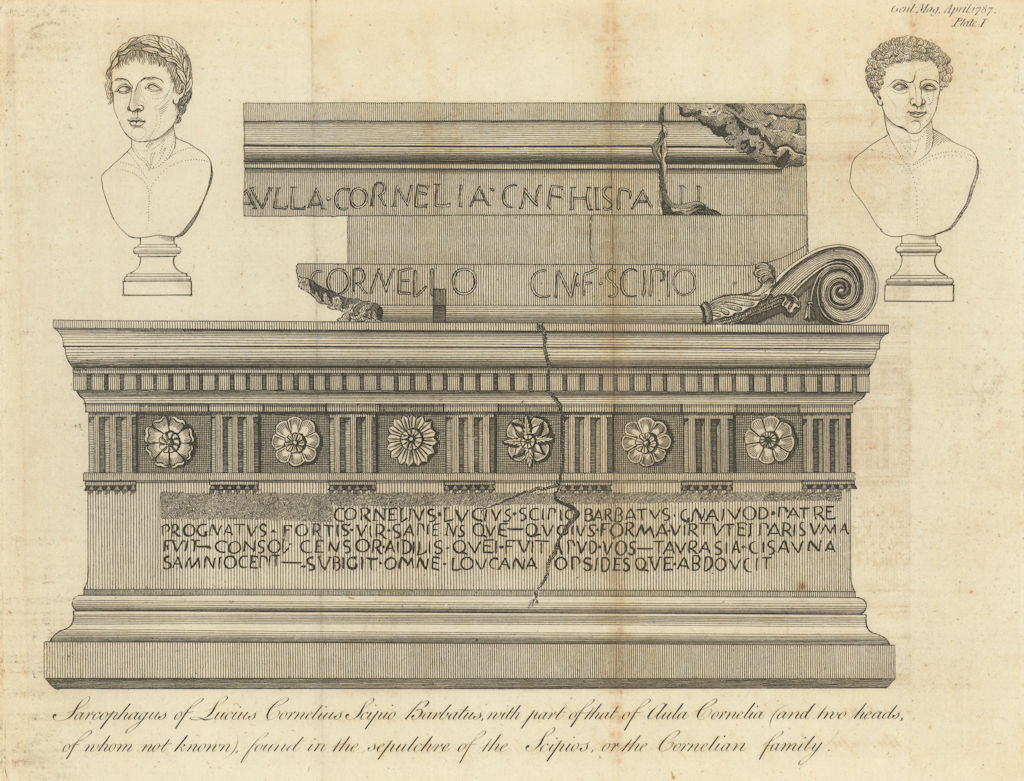 Gent. Mag. April 1787.
Plate I
AVLLA·CORNELIA·CN·F·HISPALLI
CORNELIO CN·F·SCIPIO
CORNELIVS·LVCIVS·SCIPIO·BARBATVS·GNAIVOD·PATRE
PROGNATVS·FORTIS·VIR·SAPIENSQVE—QVOIVS·FORMA·VIRTVTEI·PARISVMA
FVIT—CONSOL CENSOR·AIDILIS·QVEI·FVIT APVD·VOS—TAVRASIA·CISAVNA
SAMNIO·CEPIT—SVBIGIT·OMNE·LOVCANA OPSIDESQVE·ABDOVCIT
Sarcophagus of Lucius Cornelius Scipio Barbatus, with part of that of Aula Cornelia (and two heads,
of whom not known), found in the sepulchre of the Scipios, or the Cornelian family.